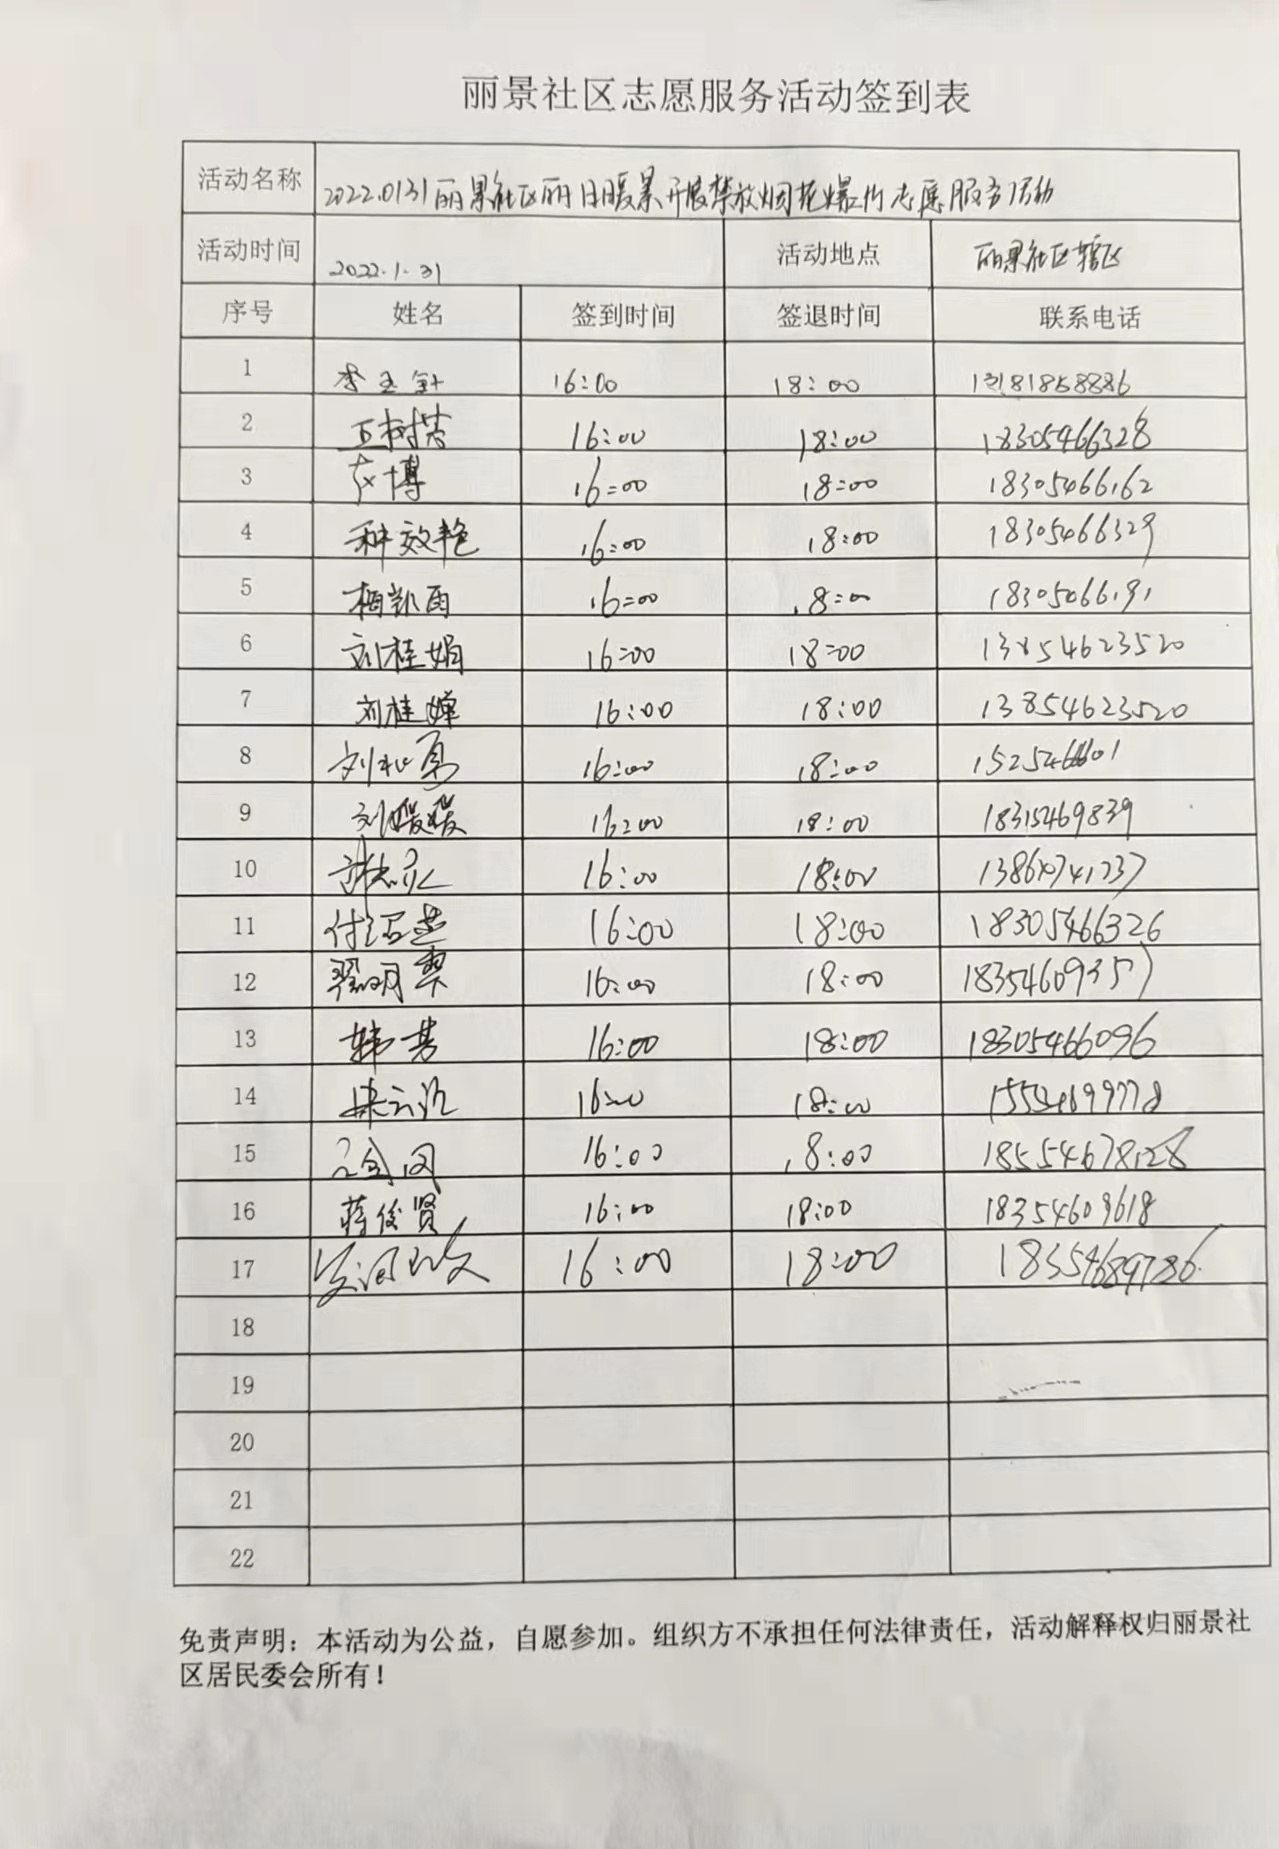 丽景社区志愿服务活动签到表
活动名称 2022.0131丽景社区丽日暖景开展禁放烟花爆竹志愿服务活动
活动时间 2022.1.31 活动地点 丽景社区辖区
序号 姓名 签到时间 签退时间 联系电话
1 16:00 18:00
2 16:00 18:00 18305466328
3 16:00 18:00 18305466162
4 种效艳 16:00 18:00 18305466329
5 16:00 18:00
6 刘桂娟 16:00 18:00 13854623520
7 刘桂婵 16:00 18:00 13854623520
8 16:00 18:00
9 刘暖暖 16:00 18:00 18315469839
10 16:00 18:00
11 16:00 18:00 18305466326
12 16:00 18:00 18354609357
13 韩芳 16:00 18:00 18305466096
14 16:00 18:00
15 16:00 18:00 18554678128
16 蒋俊贤 16:00 18:00 18354609618
17 16:00 18:00
18
19
20
21
22
免责声明：本活动为公益，自愿参加。组织方不承担任何法律责任，活动解释权归丽景社
区居民委会所有！